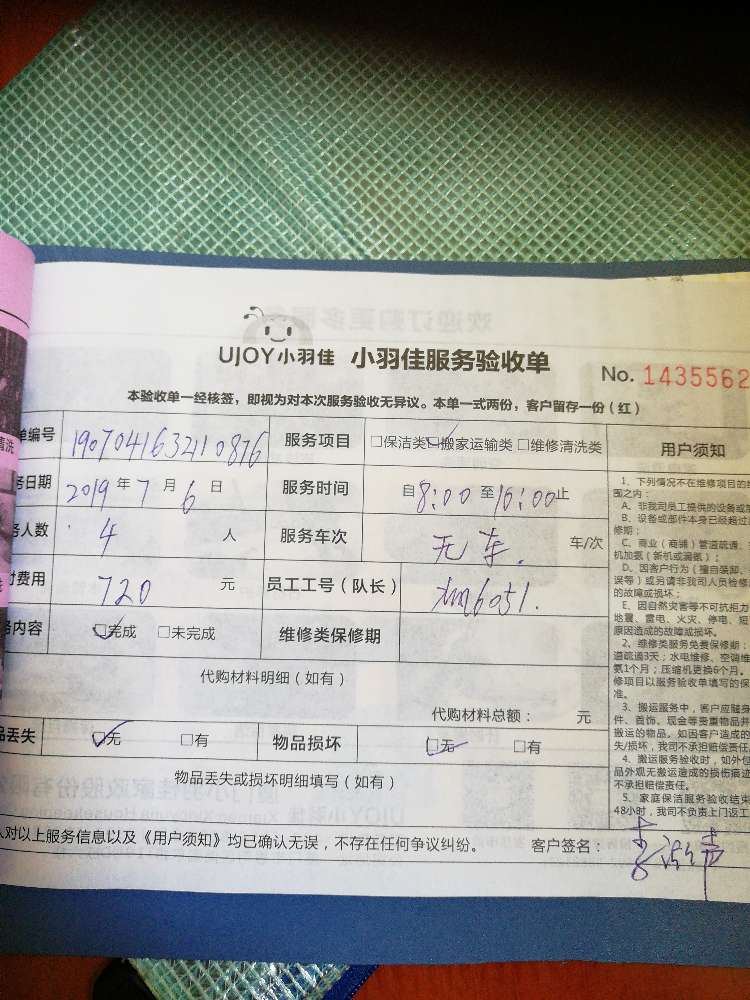 UJOY小羽佳 小羽佳服务验收单
No. 1435562
本验收单一经核签，即视为对本次服务验收无异议。本单一式两份，客户留存一份（红）
单编号 1907041632110876 服务项目 □保洁类☑搬家运输类□维修清洗类 用户须知
务日期 2019年7月6日 服务时间 自8:00至16:00止
务人数 4人 服务车次 无车. 车/次
付费用 720元 员工工号（队长） 6051.
务内容 ☑完成 □未完成 维修类保修期
代购材料明细（如有）
代购材料总额： 元
品丢失 ☑无 □有 物品损坏 ☑无 □有
物品丢失或损坏明细填写（如有）
人对以上服务信息以及《用户须知》均已确认无误，不存在任何争议纠纷。 客户签名：
1、下列情况不在维修项目的
围之内：
A、非我司员工提供的设备或
B、设备或部件本身已经超过
修期；
C、商业（商铺）管道疏通、
机加氨（新机或漏氨）；
D、因客户行为（擅自装卸、
误等）或另请非我司人员检修
的故障或损坏；
E、因自然灾害等不可抗拒力
地震、雷电、火灾、停电、短
原因造成的故障或损坏。
2、维修类服务免费保修期：
道疏通3天；水电维修、空调维
氨1个月；压缩机更换6个月。
修项目以服务验收单填写的保
准。
3、搬运服务中，客户应随身
件、首饰、现金等贵重物品并
搬运的物品。如因客户造成的
失/损坏，我司不承担赔偿责任
4、搬运服务验收时，如外包
品外观无搬运造成的损伤痕迹
不承担赔偿责任。
5、家庭保洁服务验收结束
48小时，我司不负责上门返工
清洗